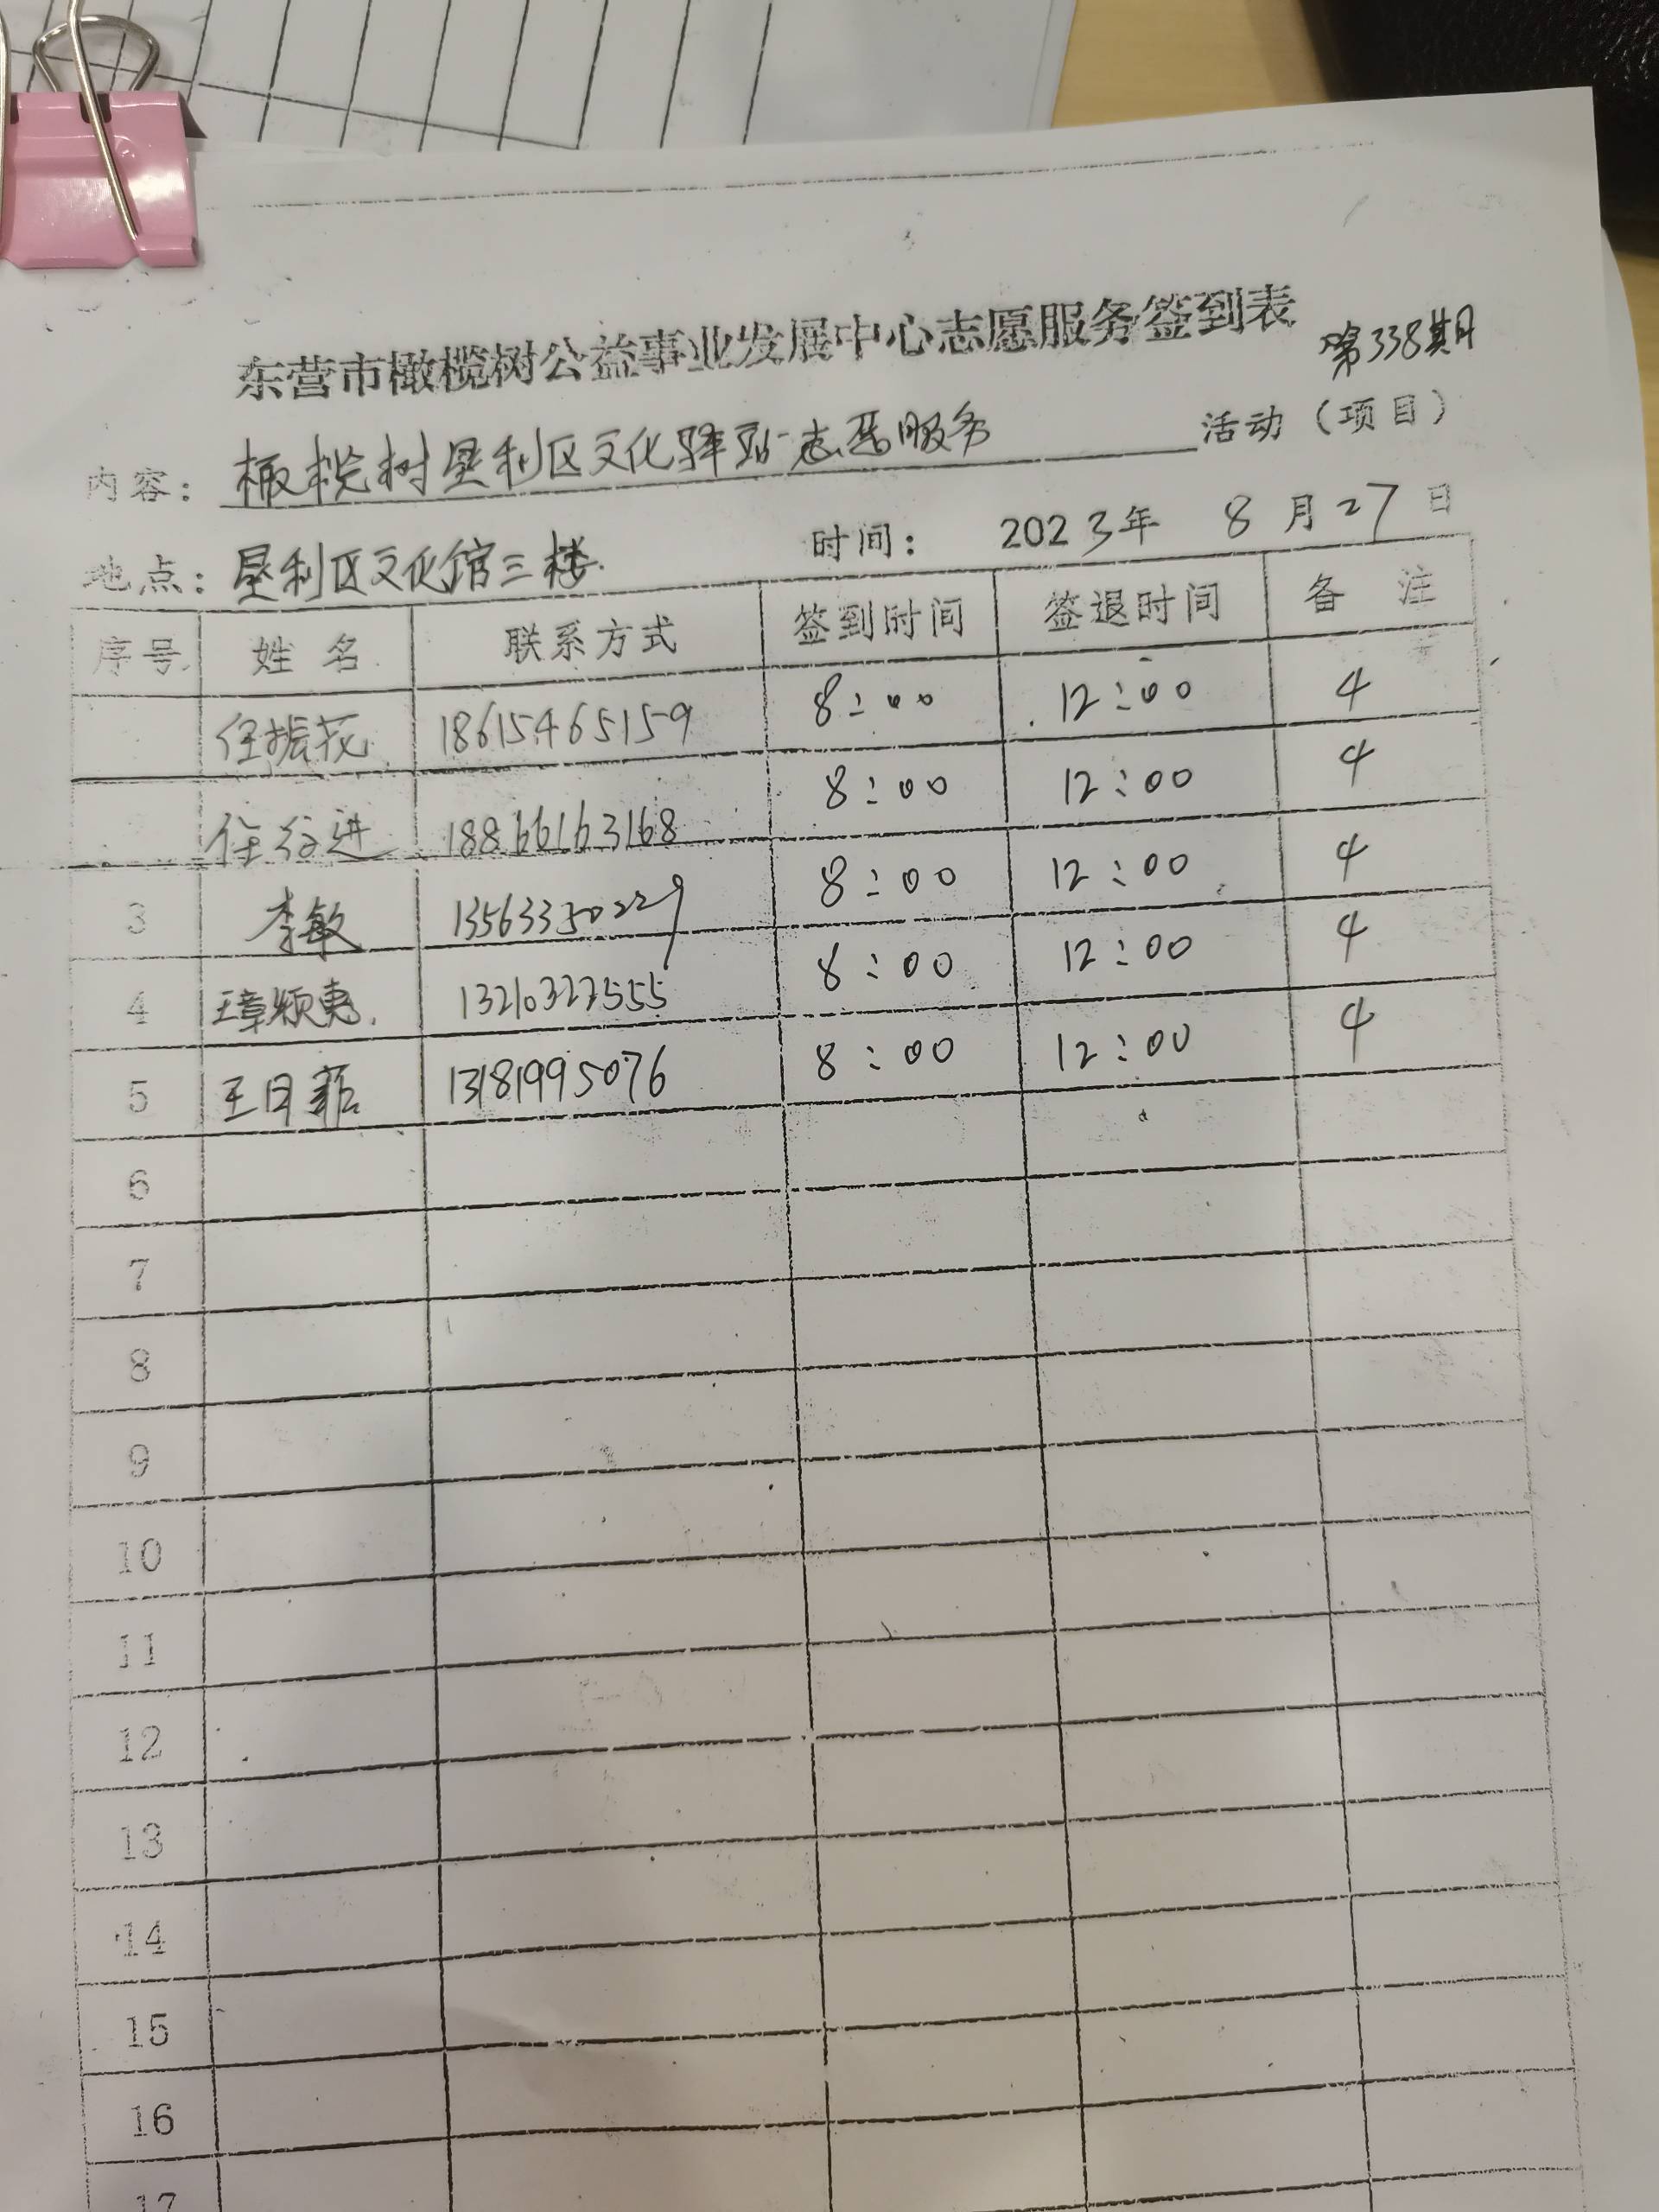 东营市橄榄树公益事业发展中心志愿服务签到表 第338期
内容：橄榄树垦利区文化驿站志愿服务 活动（项目）
地点：垦利区文化馆三楼 时间： 2023年 8月27日
序号 姓名 联系方式 签到时间 签退时间 备注
任振花 18615465159 8:00 12:00 4
任行进 18866163168 8:00 12:00 4
3 李敏 13563350229 8:00 12:00 4
4 颖惠 13210327555 8:00 12:00 4
5 王日 13181995076 8:00 12:00 4
6
7
8
9
10
11
12
13
14
15
16
17